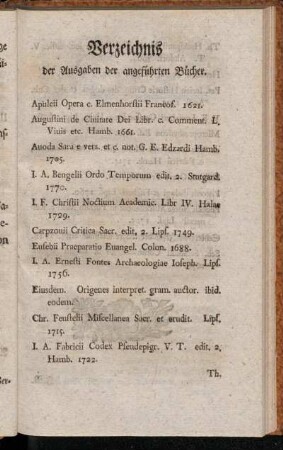 Verzeichnis
der Ausgaben der angeführten Bücher.
Apuleii Opera c. Elmenhorstii Francof. 1621.
Augustini de Ciuitate Dei Libr. c. Comment. L.
Viuis etc. Hamb. 1661.
Auoda Sara e vers. et c. not. G. E. Edzardi Hamb.
1705.
I. A. Bengelii Ordo Temporum edit. 2. Stutgard.
1770.
I. F. Christii Noctium Academic. Libr IV. Halae
1729.
Carpzouii Critica Sacr. edit. 2. Lips. 1749.
Eusebii Praeparatio Euangel. Colon. 1688.
I. A. Ernesti Fontes Archaeologiae Ioseph. Lips.
1756.
Eiusdem. Origenes interpret. gram. auctor. ibid.
eodem.
Chr. Fenstelii Miscellanea Sacr. et erudit. Lips.
1715.
I. A. Fabricii Codex Pseudepigr. V. T. edit. 2.
Hamb. 1722.
Th.